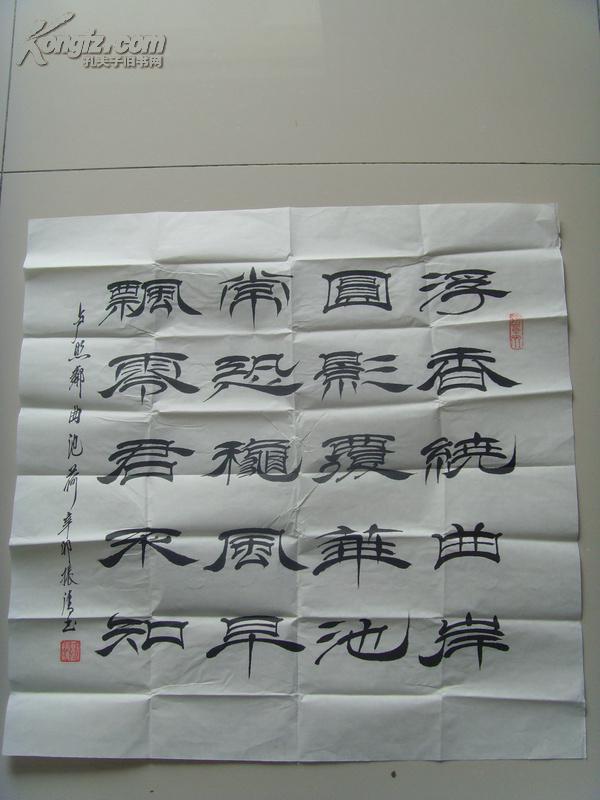 Kongfz.com
孔夫子旧书网
浮香繞曲岸
圓影覆華池
常恐龝風早
飄零君不知
卢照鄰曲池荷辛卯振清书